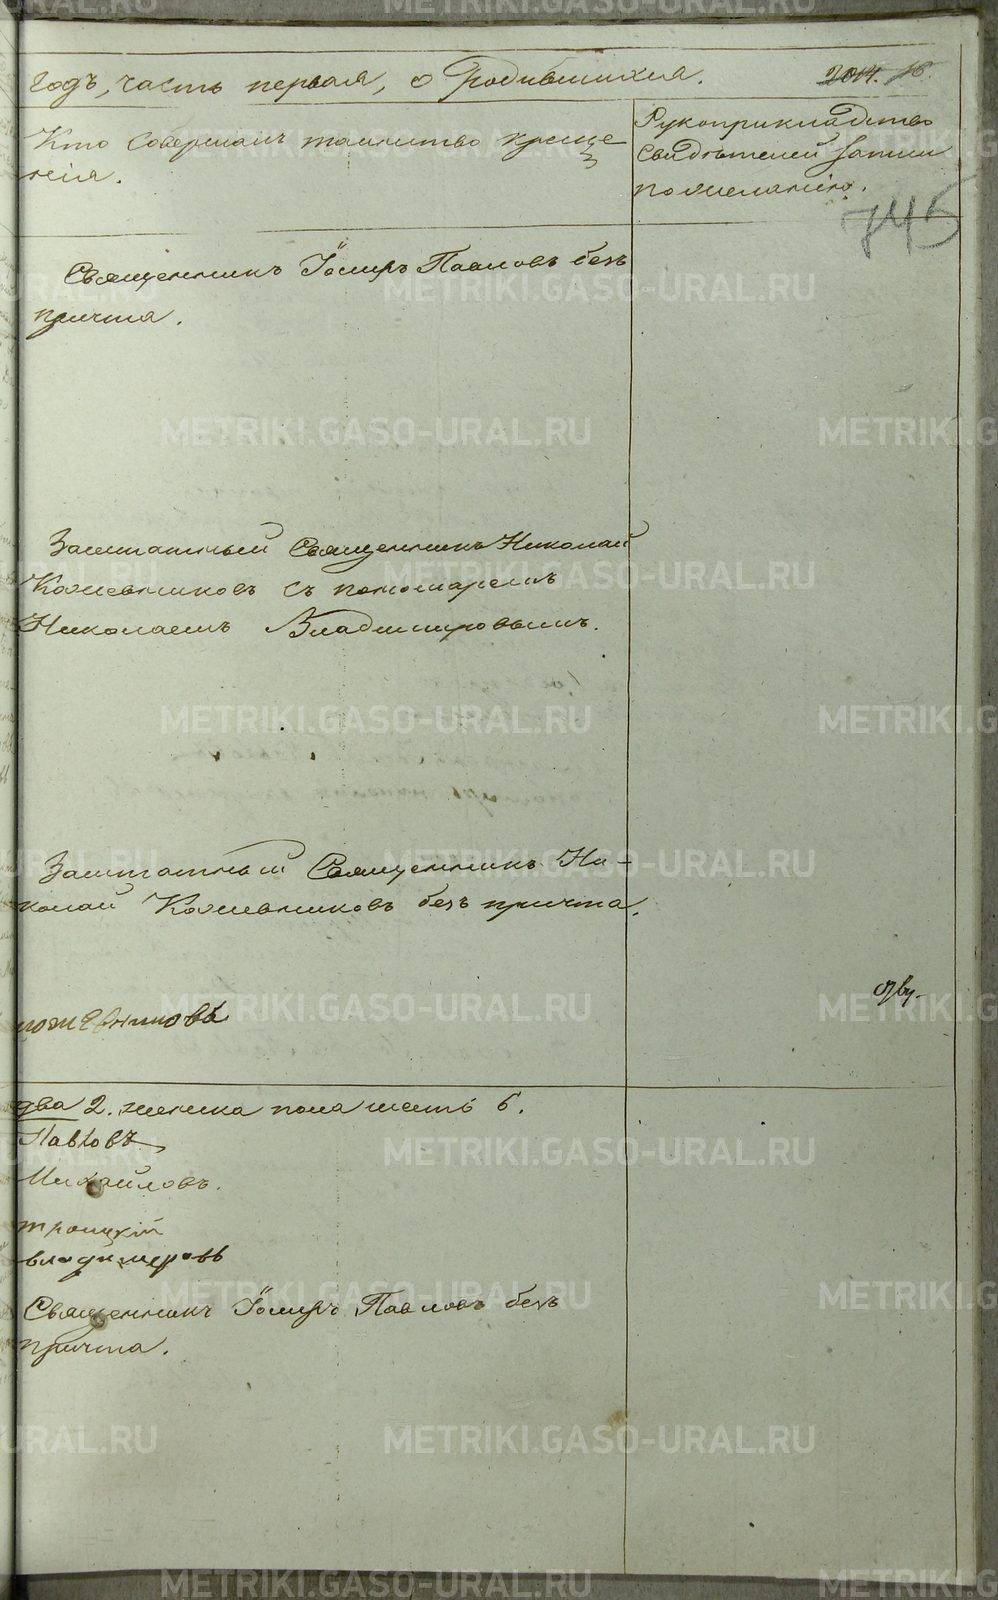 годъ, часть первая, о Родившихся.
2014. 16.
Кто совершалъ таинство креще
нія.
Рукоприкладство
свидѣтелей записи
по желанію.
745
Священникъ Іоииръ Павловъ безъ
причта.
Заштатный Священникъ Николай
Кожевниковъ съ пономаремъ
Николаемъ Владимировымъ.
Заштатный Священникъ Ни-
колай Кожевниковъ безъ причта.
кожевниковъ
два 2. женска пола шесть 6.
Павловъ
Михайловъ.
троицкій
владимеровъ
Священникъ Павловъ безъ
причта.
METRIKI.GASO-URAL.RU